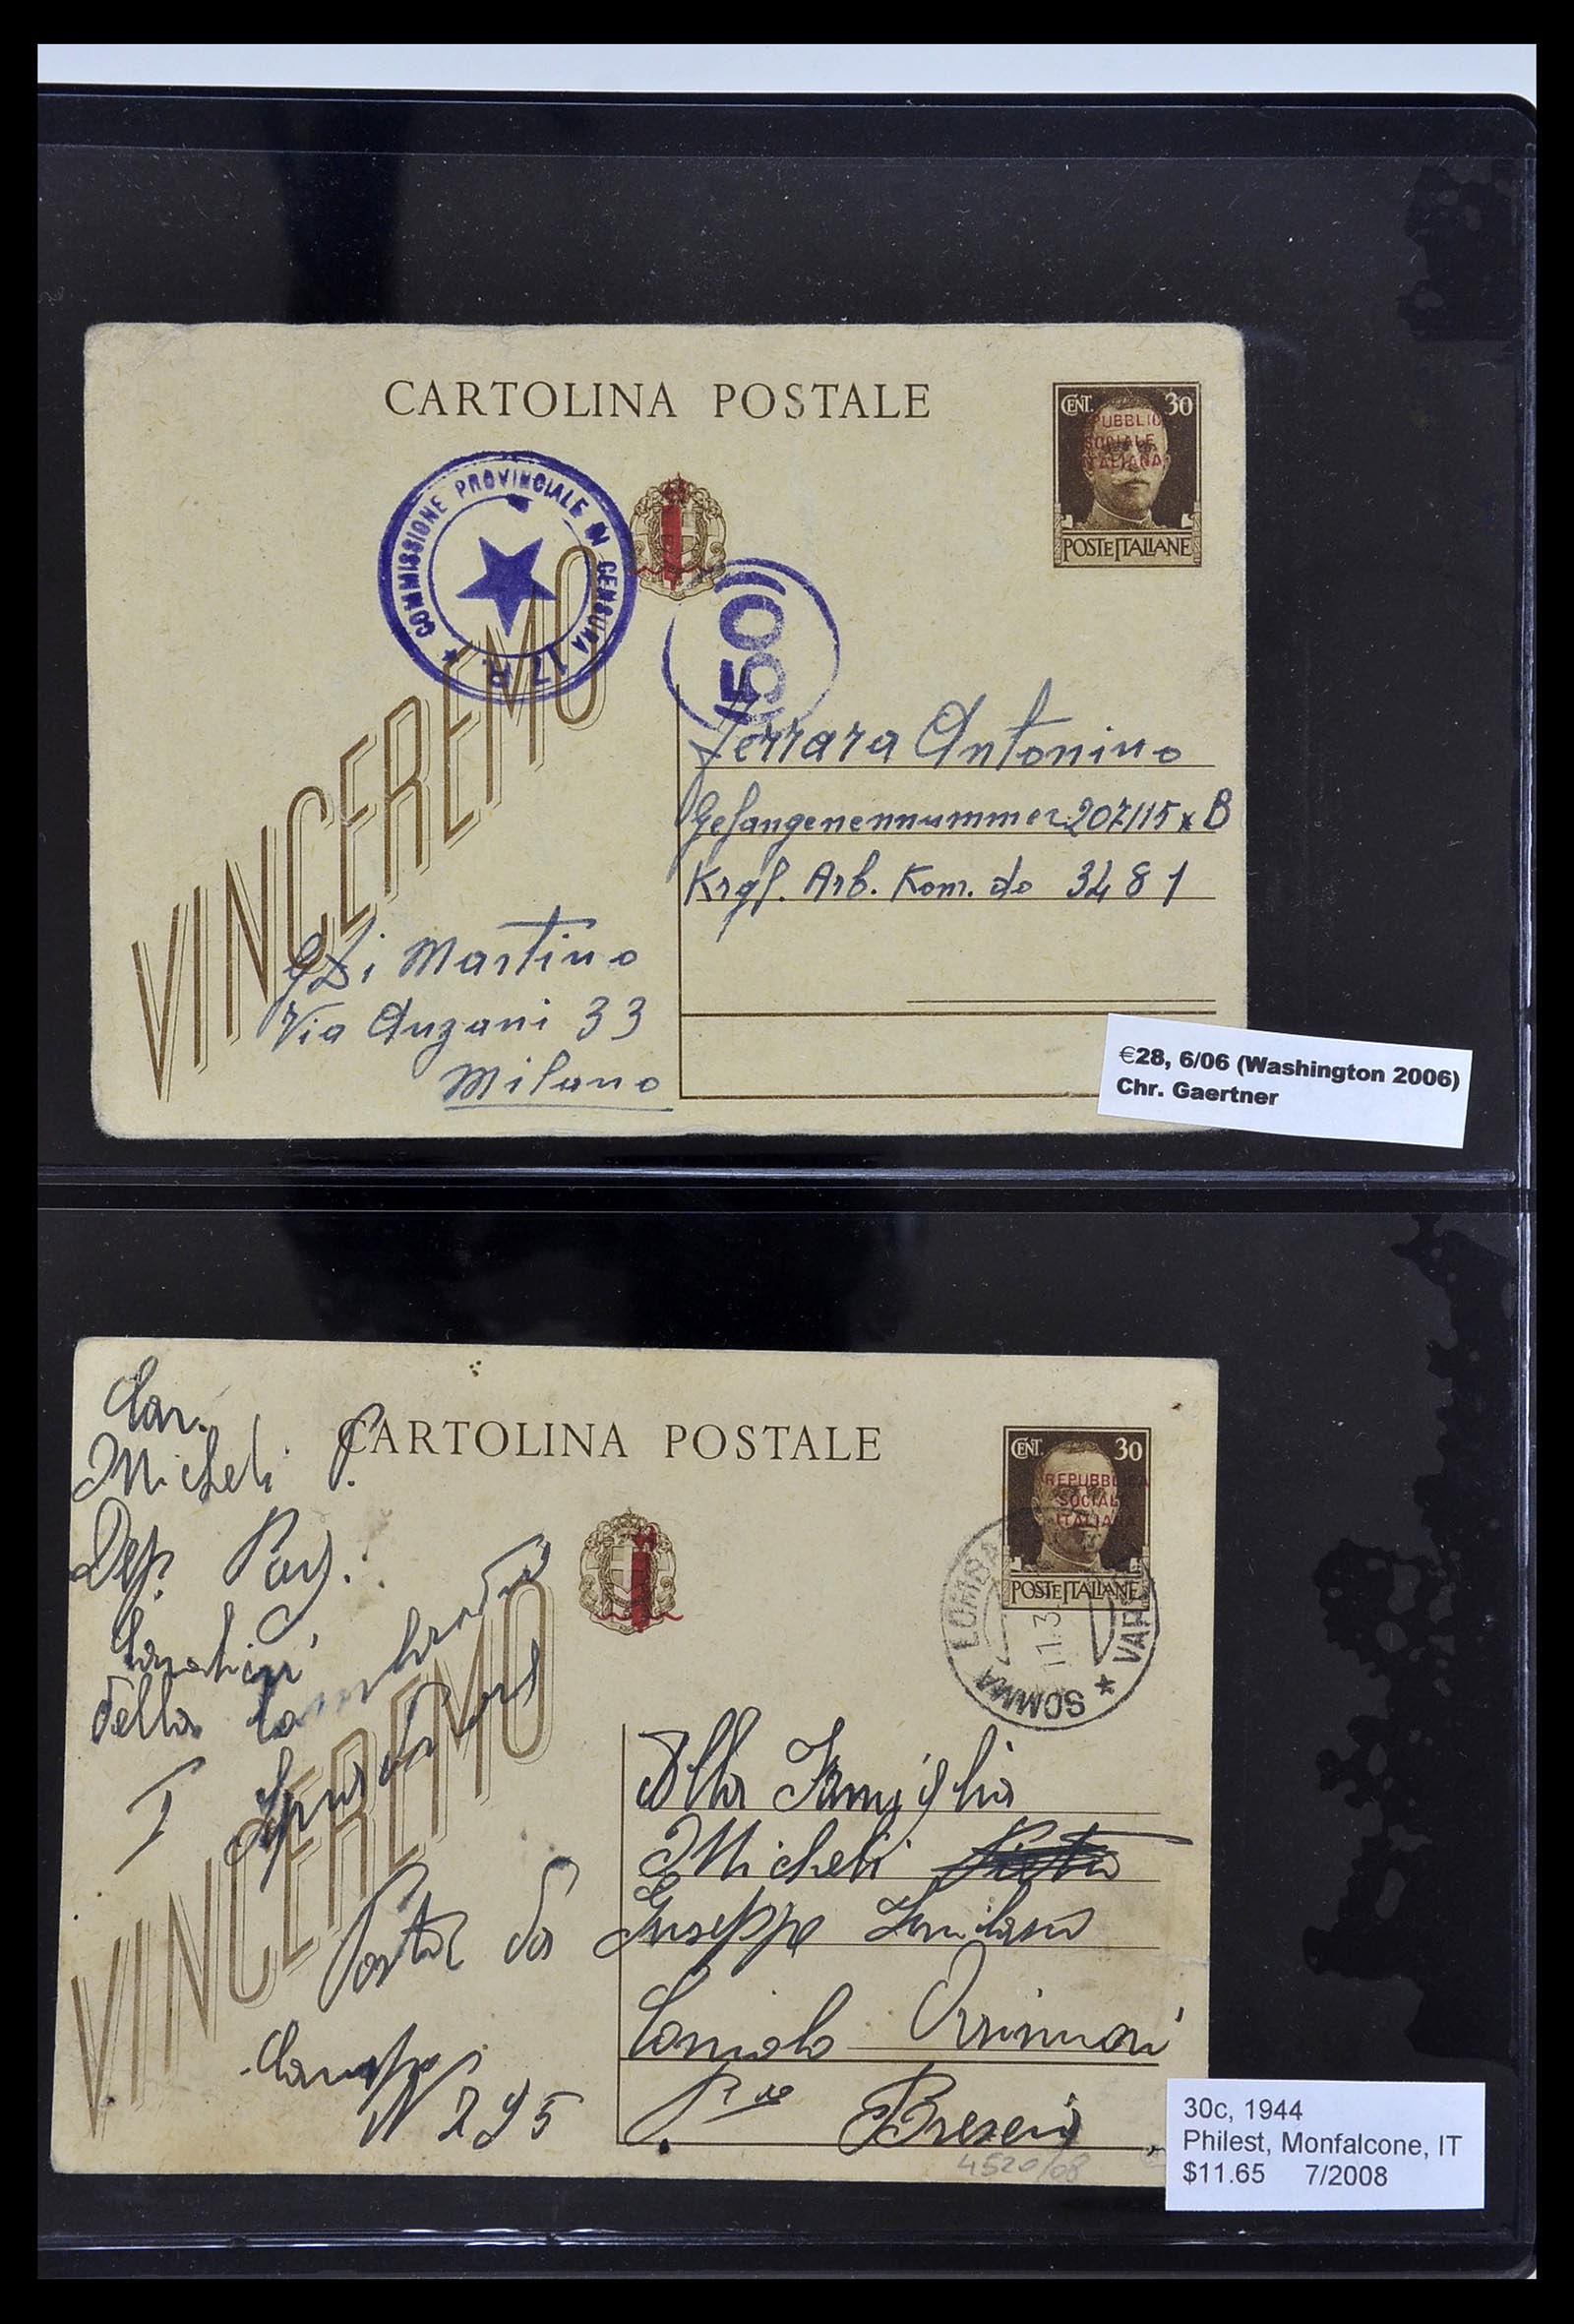 CARTOLINA POSTALE
CENT. 30
PUBBLIC
SOCIALE
ITALIANA
POSTE ITALIANE
COMMISSIONE PROVINCIALE IN CENSURA 17 R. ★
50
VINCEREMO
Ferrara Antonino
Gefangenennummer 207115 x B
Krgf. Arb. Kom. do 3481
Di Martino
Via Anzani 33
Milano
€28, 6/06 (Washington 2006)
Chr. Gaertner
CARTOLINA POSTALE
CENT. 30
REPUBBLICA
SOCIAL
ITALIA
POSTE ITALIANE
SOMMA LOMBA
VAR
Car.
Micheli P.
Dep.
della
I
VINCEREMO
Posta da
Campo
N 295
Alla Famiglia
Micheli
Giuseppe
Orzinuovi
Brescia
4520/08
30c, 1944
Philest, Monfalcone, IT
$11.65 7/2008